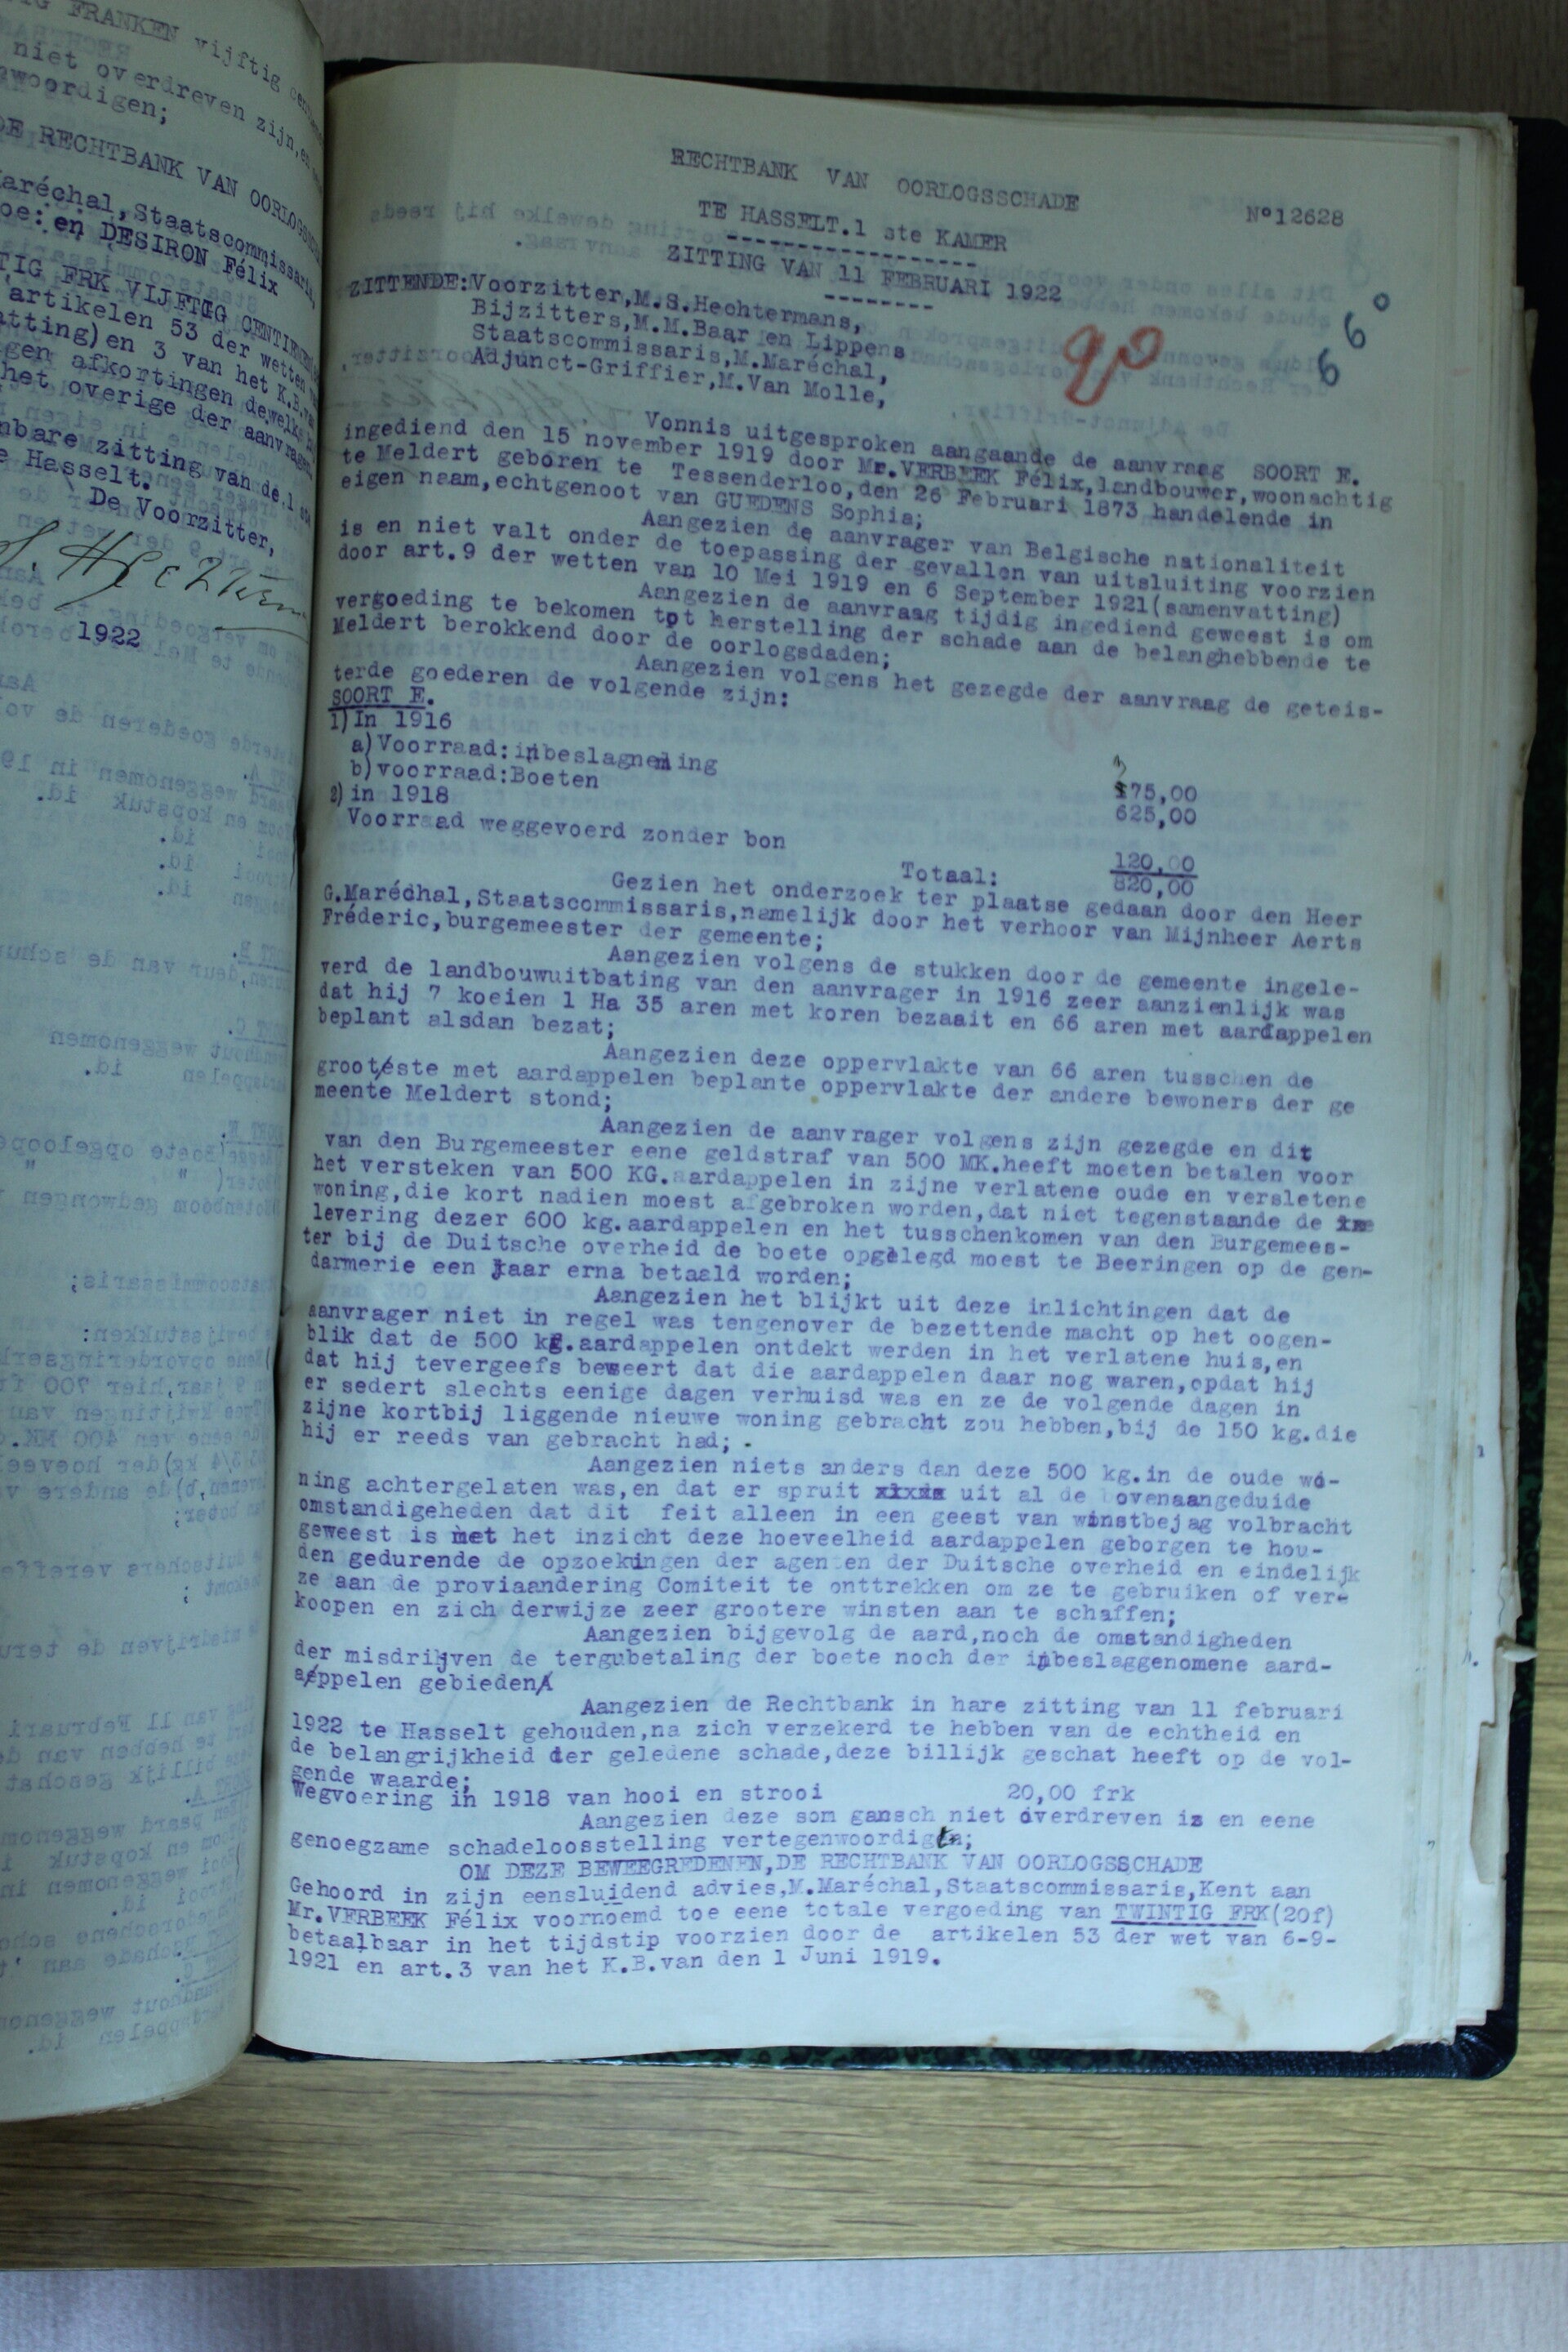 IG FRANKEN vijftig
niet overdreven zijn,en
woordigen;
DE RECHTBANK VAN OORLOGS
aréchal,Staatscommissaris,
oe: en DESIRON Félix
TIG FRK VIJFTIG CENTIEMEN
artikelen 53 der wetten
atting)en 3 van het K.B.
gen afkortingen dewelke
het overige der aanvragen,
nbare zitting van de 1 ste
e Hasselt.
De Voorzitter,
1922
RECHTBANK VAN OORLOGSSCHADE
N°12628
TE HASSELT.1 ste KAMER
ZITTING VAN 11 FEBRUARI 1922
66°
90
ZITTENDE:Voorzitter,M.S.Hechtermans,
Bijzitters,M.M.Baar en Lippens
Staatscommissaris,M.Maréchal,
Adjunct-Griffier,M.Van Molle,
Vonnis uitgesproken aangaande de aanvraag SOORT E.
ingediend den 15 november 1919 door Mr.VERBEEK Félix,landbouwer,woonachtig
te Meldert geboren te Tessenderloo,den 26 Februari 1873 handelende in
eigen naam,echtgenoot van GUEDENS Sophia;
Aangezien de aanvrager van Belgische nationaliteit
is en niet valt onder de toepassing der gevallen van uitsluiting voorzien
door art.9 der wetten van 10 Mei 1919 en 6 September 1921(samenvatting)
Aangezien de aanvraag tijdig ingediend geweest is om
vergoeding te bekomen tot herstelling der schade aan de belanghebbende te
Meldert berokkend door de oorlogsdaden;
Aangezien volgens het gezegde der aanvraag de geteis-
terde goederen de volgende zijn:
SOORT E.
1)In 1916
a)Voorraad:inbeslagneming
b)voorraad:Boeten
75,00
2)in 1918
625,00
Voorraad weggevoerd zonder bon
120,00
Totaal: 820,00
Gezien het onderzoek ter plaatse gedaan door den Heer
G.Maréchal,Staatscommissaris,namelijk door het verhoor van Mijnheer Aerts
Fréderic,burgemeester der gemeente;
Aangezien volgens de stukken door de gemeente ingele-
verd de landbouwuitbating van den aanvrager in 1916 zeer aanzienlijk was
dat hij 7 koeien 1 Ha 35 aren met koren bezaait en 66 aren met aardappelen
beplant alsdan bezat;
Aangezien deze oppervlakte van 66 aren tusschen de
grootste met aardappelen beplante oppervlakte der andere bewoners der ge
meente Meldert stond;
Aangezien de aanvrager volgens zijn gezegde en dit
van den Burgemeester eene geldstraf van 500 MK.heeft moeten betalen voor
het versteken van 500 KG.aardappelen in zijne verlatene oude en versletene
woning,die kort nadien moest afgebroken worden,dat niet tegenstaande de
levering dezer 600 kg.aardappelen en het tusschenkomen van den Burgemees-
ter bij de Duitsche overheid de boete opgelegd moest te Beeringen op de gen-
darmerie een jaar erna betaald worden;
Aangezien het blijkt uit deze inlichtingen dat de
aanvrager niet in regel was tengenover de bezettende macht op het oogen-
blik dat de 500 kg.aardappelen ontdekt werden in het verlatene huis,en
dat hij tevergeefs beweert dat die aardappelen daar nog waren,opdat hij
er sedert slechts eenige dagen verhuisd was en ze de volgende dagen in
zijne kortbij liggende nieuwe woning gebracht zou hebben,bij de 150 kg.die
hij er reeds van gebracht had;
Aangezien niets anders dan deze 500 kg.in de oude wo-
ning achtergelaten was,en dat er spruit uit al de bovenaangeduide
omstandigeheden dat dit feit alleen in een geest van winstbejag volbracht
geweest is met het inzicht deze hoeveelheid aardappelen geborgen te hou-
den gedurende de opzoekingen der agenten der Duitsche overheid en eindelijk
ze aan de proviaandering Comiteit te onttrekken om ze te gebruiken of ver-
koopen en zich derwijze zeer grootere winsten aan te schaffen;
Aangezien bijgevolg de aard,noch de omstandigheden
der misdrijven de tergubetaling der boete noch der inbeslaggenomene aard-
appelen gebieden
Aangezien de Rechtbank in hare zitting van 11 februari
1922 te Hasselt gehouden,na zich verzekerd te hebben van de echtheid en
de belangrijkheid der geledene schade,deze billijk geschat heeft op de vol-
gende waarde;
Wegvoering in 1918 van hooi en strooi 20,00 frk
Aangezien deze som gansch niet overdreven is en eene
genoegzame schadeloosstelling vertegenwoordigt;
OM DEZE BEWEEGREDENEN,DE RECHTBANK VAN OORLOGSSCHADE
Gehoord in zijn eensluidend advies,M.Maréchal,Staatscommissaris,Kent aan
Mr.VERBEEK Félix voornoemd toe eene totale vergoeding van TWINTIG FRK(20f)
betaalbaar in het tijdstip voorzien door de artikelen 53 der wet van 6-9-
1921 en art.3 van het K.B.van den 1 Juni 1919.